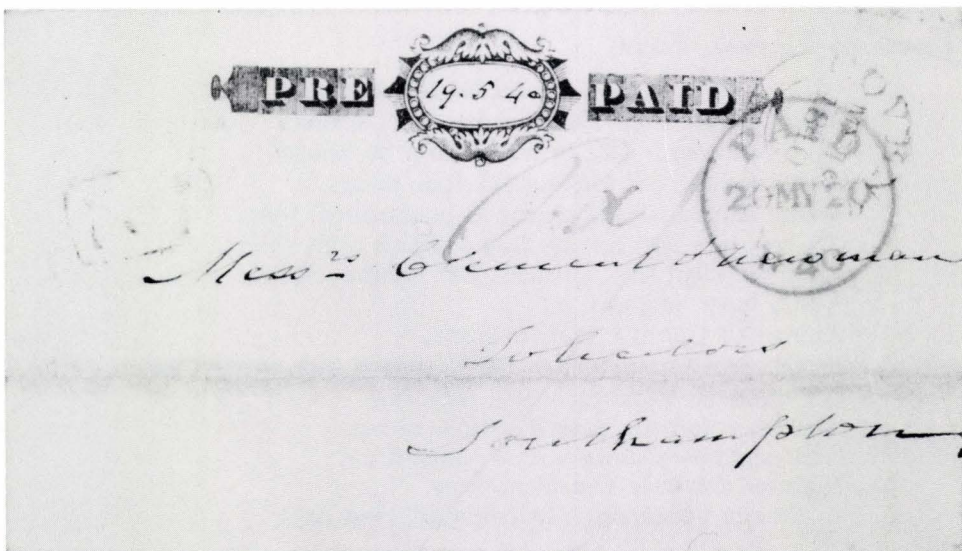 PRE 19.5 40 PAID
PAID
20MY20
1840
Messrs Clement & Newman
Solicitors
Southampton